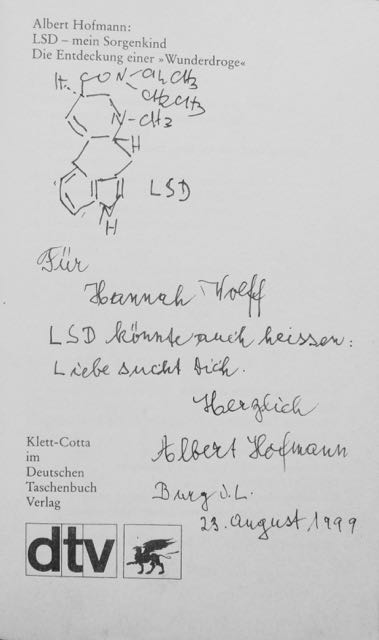 Albert Hofmann:
LSD – mein Sorgenkind
Die Entdeckung einer »Wunderdroge«
H CON–CH2CH3
CH2CH3
N–CH3
H
LSD
N
H
Für
Hannah Wolff
LSD könnte auch heissen:
Liebe sucht Dich.
Herzlich
Albert Hofmann
Burg i.L.
23. August 1999
Klett-Cotta
im
Deutschen
Taschenbuch
Verlag
dtv